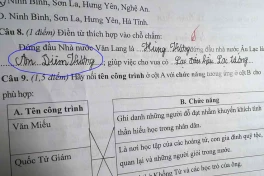 Ninh Bình, Sơn La, Hưng Yên, Nghệ An.
D. Ninh Bình, Sơn La, Hưng Yên, Hà Tĩnh.
Câu 8. (1 điểm) Điền từ thích hợp vào chỗ chấm:
Đứng đầu Nhà nước Văn Lang là Hùng Vương đứng đầu nhà nước Âu Lạc là
An Dương Vương, giúp việc cho vua có Lạc hầu, Lạc tướng
Câu 9. (1,5 điểm) Hãy nối tên công trình ở cột A với chức năng tương ứng ở cột B cho
phù hợp:
A. Tên công trình
B. Chức năng
Văn Miếu
Ghi danh những người đỗ đạt nhằm khuyến khích tinh
thần hiếu học trong nhân dân.
Quốc Tử Giám
Là nơi học tập của các hoàng tử, con gia đình quý tộc,
quan lại và những người giỏi trong nước.
Khổng Tử và các học trò của ông,